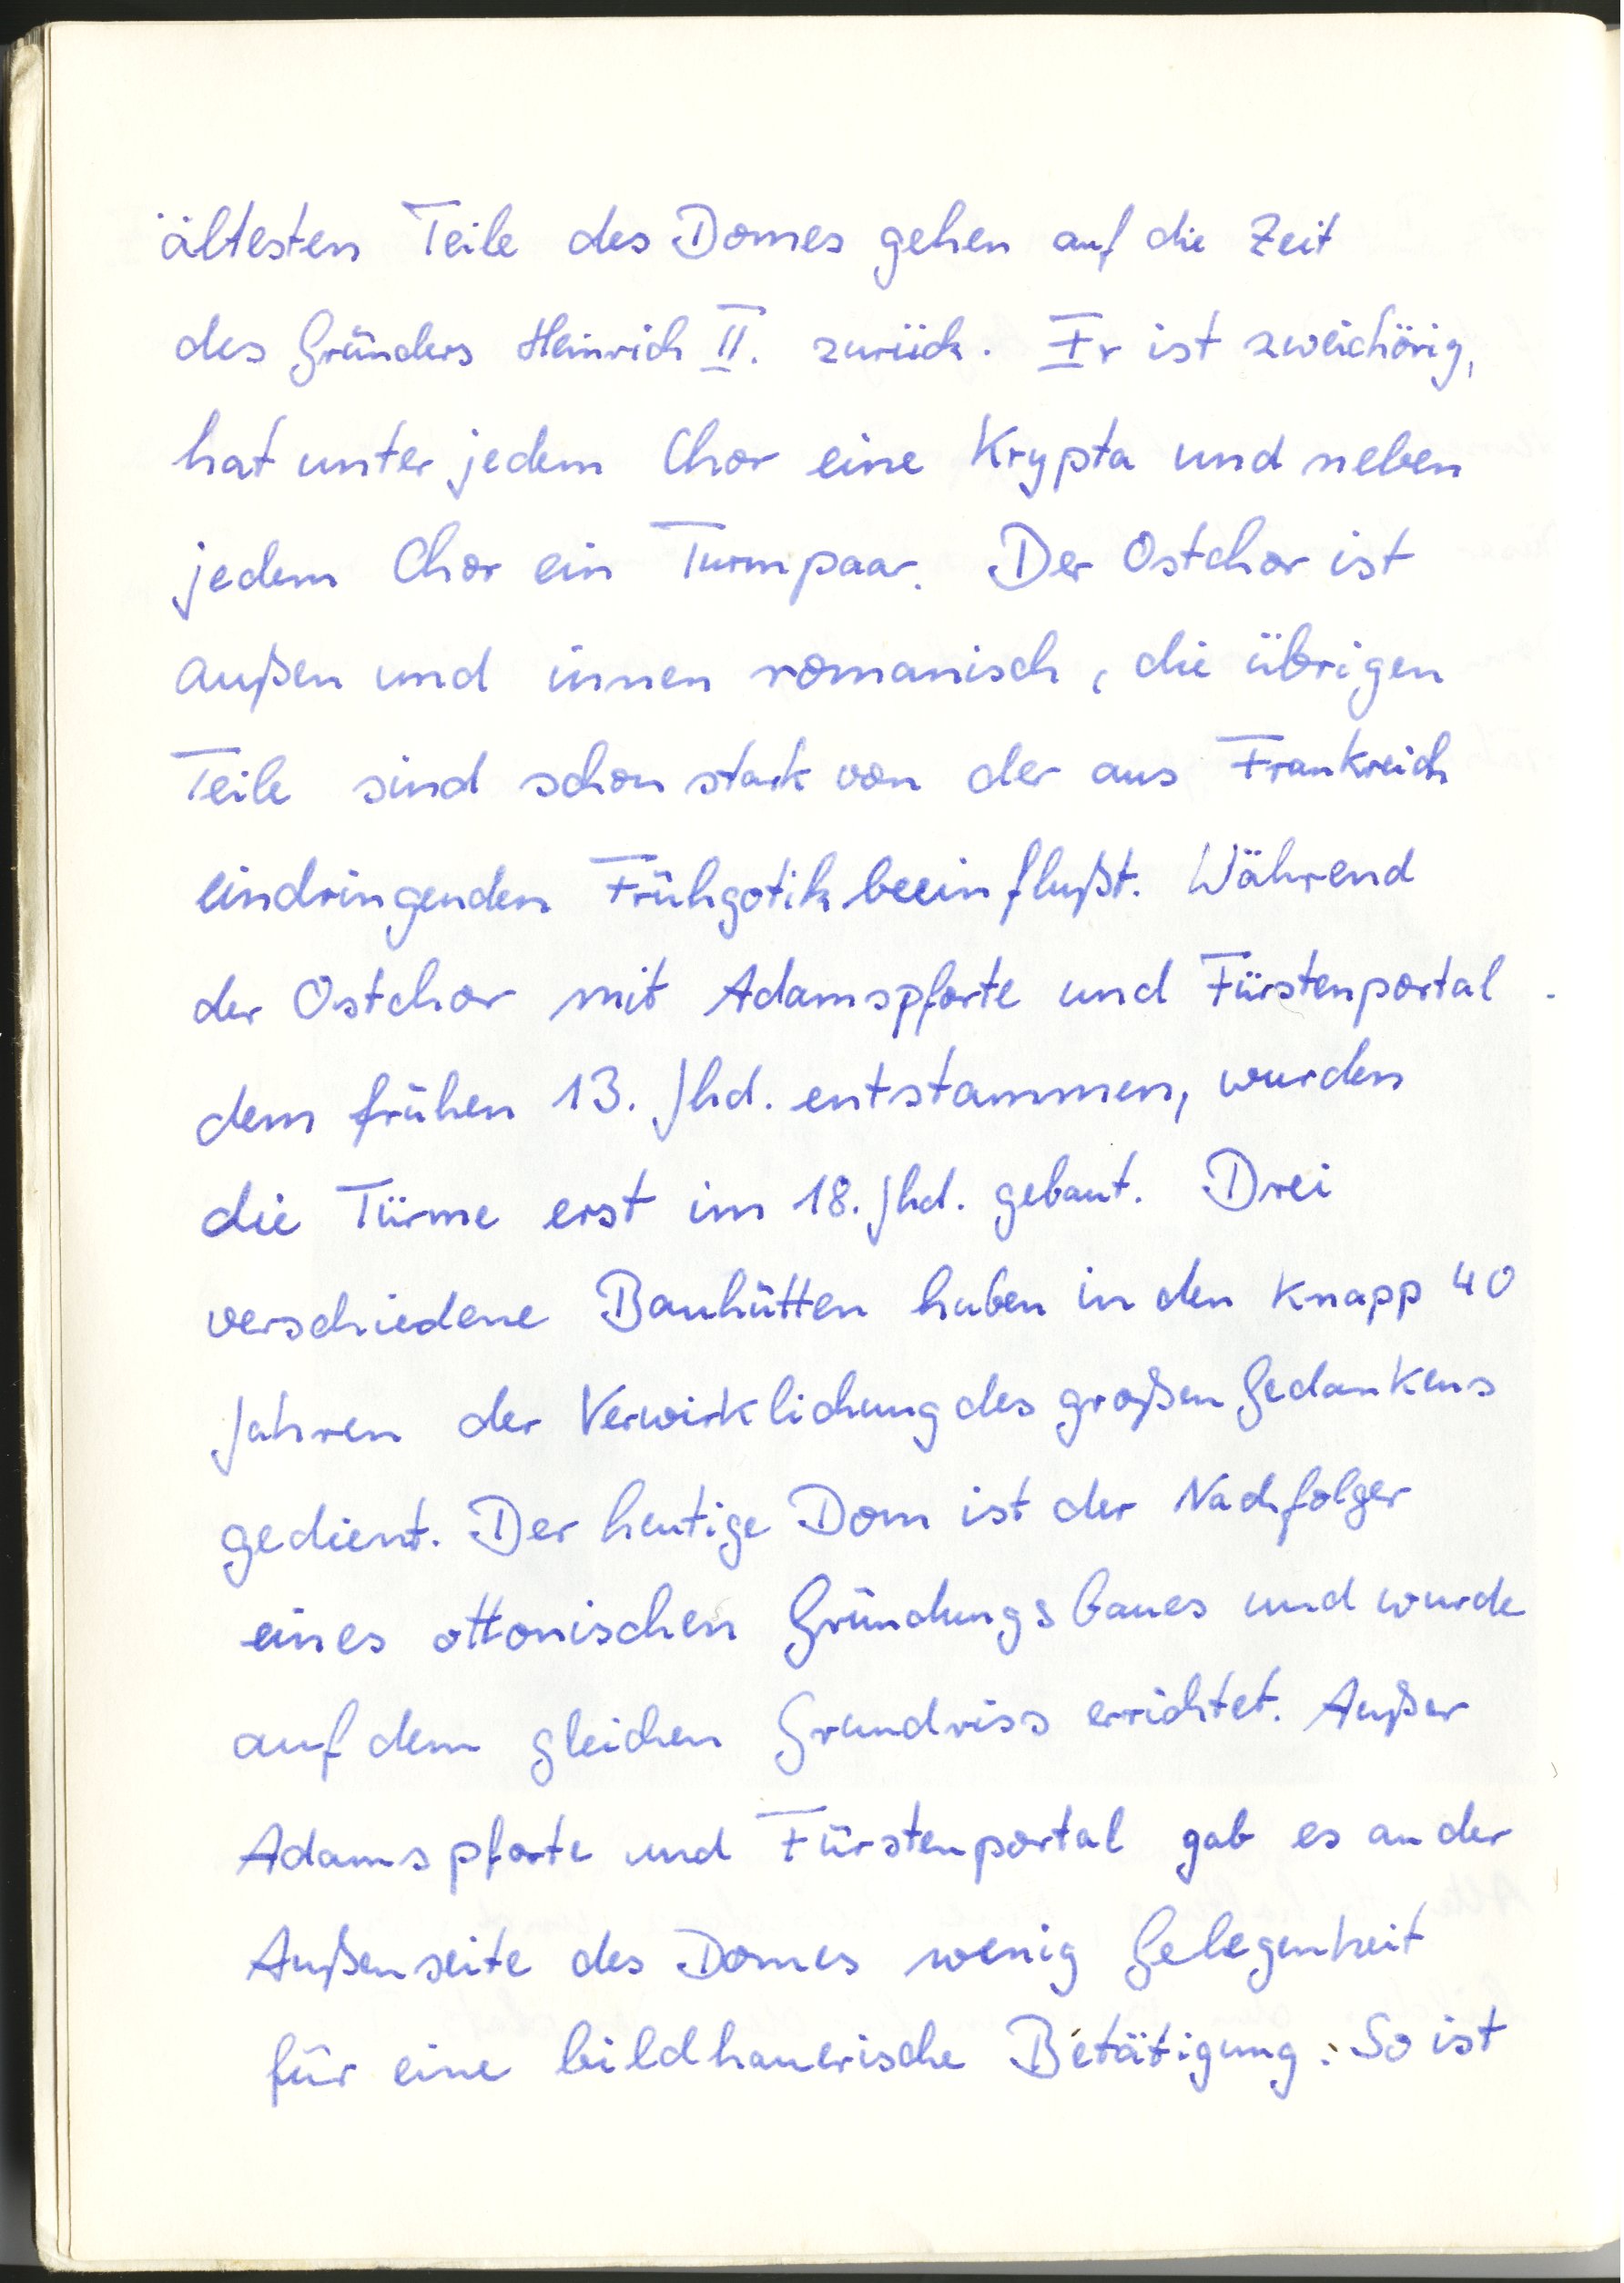 ältesten Teile des Domes gehen auf die Zeit
des Gründers Heinrich II. zurück. Er ist zweichörig,
hat unter jedem Chor eine Krypta und neben
jedem Chor ein Turmpaar. Der Ostchor ist
außen und innen romanisch, die übrigen
Teile sind schon stark von der aus Frankreich
eindringenden Frühgotik beeinflußt. Während
der Ostchor mit Adamspforte und Fürstenportal
dem frühen 13. Jhd. entstammen, wurden
die Türme erst im 18. Jhd. gebaut. Drei
verschiedene Bauhütten haben in den knapp 40
Jahren der Verwirklichung des großen Gedankens
gedient. Der heutige Dom ist der Nachfolger
eines ottonischen Gründungsbaues und wurde
auf dem gleichen Grundriss errichtet. Außer
Adamspforte und Fürstenportal gab es an der
Außenseite des Domes wenig Gelegenheit
für eine bildhauerische Betätigung. So ist